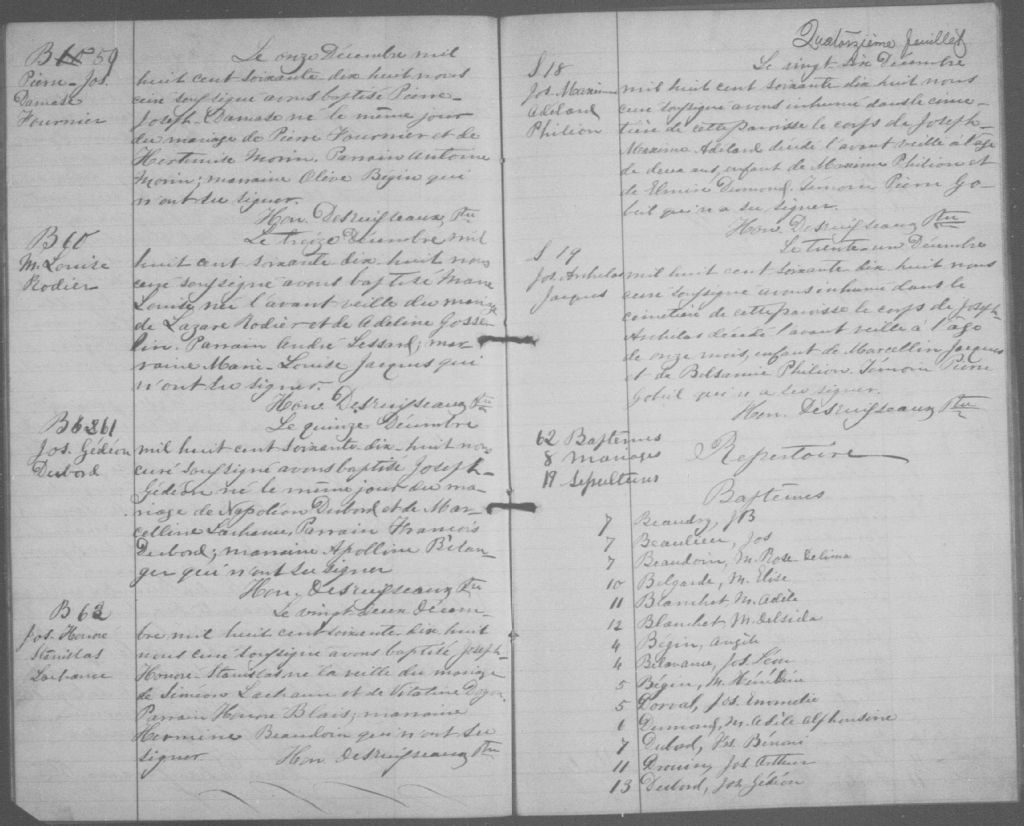 B 59
Pierre-Jos.
Damase
Fournier
Le onze Décembre mil
huit cent soixante dix huit nous
curé soussigné avons baptisé Pierre-
Joseph-Damase né le même jour
du mariage de Pierre Fournier et de
Hertimise Morin. Parrain Antoine
Morin; marraine Olive Bégin qui
n'ont su signer.
Hon. Desruisseaux Ptre
B 60
M. Louise
Rodier
Le treize Décembre mil
huit cent soixante dix huit nous
curé soussigné avons baptisé Marie
Louise, née l'avant veille du mariage
de Lazare Rodier et de Adeline Gosse-
lin. Parrain André Lessard; mar-
raine Marie-Louise Jacques qui
n'ont su signer.
Hon. Desruisseaux Ptre
B 61
Jos. Gédéon
Dubord
Le quinze Décembre
mil huit cent soixante-dix-huit nous
curé soussigné avons baptisé Joseph-
Gédéon né le même jour du ma-
riage de Napoléon Dubord et de Mar-
celline Lachance, Parrain Francois
Dubord; marraine Apolline Bélan-
ger qui n'ont su signer
Hon. Desruisseaux Ptre
B 62
Jos. Honoré
Stanislas
Lachance
Le vingt deux Décem-
bre mil huit cent soixante-dix huit
nous curé soussigné avons baptisé Joseph-
Honoré-Stanislas né la veille du mariage
de Siméon Lachance et de Vitaline
Parrain Honoré Blais; marraine
Hermine Beaudoin qui n'ont su
signer Hon. Desruisseaux Ptre
Quatorzième feuillet
S 18
Jos. Maxime
Adelard
Philion
Le vingt six Décembre
mil huit cent soixante dix huit nous
curé soussigné avons inhumé dans le cime-
tière de cette paroisse le corps de Joseph-
Maxime Adelard décédé l'avant veille à l'age
de deux ans, enfant de Maxime Philion et
de Elmire Dumond. Témoin Pierre Go-
beil qui n'a su signer.
Hon. Desruisseaux Ptre
S 19
Jos. Archelas
Jacques
Le trente-un Décembre
mil huit cent soixante dix huit nous
curé soussigné avons inhumé dans le
cimetière de cette paroisse le corps de Joseph-
Archelas décédé l'avant veille à l'age
de onze mois, enfant de Marcellin Jacques
et de Philion. Témoin Pierre
Gobeil qui n'a su signer.
Hon. Desruisseaux Ptre
62 Baptêmes
8 Mariages
19 Sépultures
Répertoire
Baptêmes
7 Beaudry, JB
7 Beaulieu, Jos
7 Beaudoin, M. Rose Delima
10 Belgarde, M. Elise
11 Blanchet, M. Adèle
12 Blanchet, M.
4 Bégin,
4 Jos. Léon
5 Bégin, M.
5 Dorval, Jos.
6 Dumond, M. Adèle Alphonsine
7 Dubord, Bénoni
11 Drouin, Jos Arthur
13 Dubord, Jos Gédéon